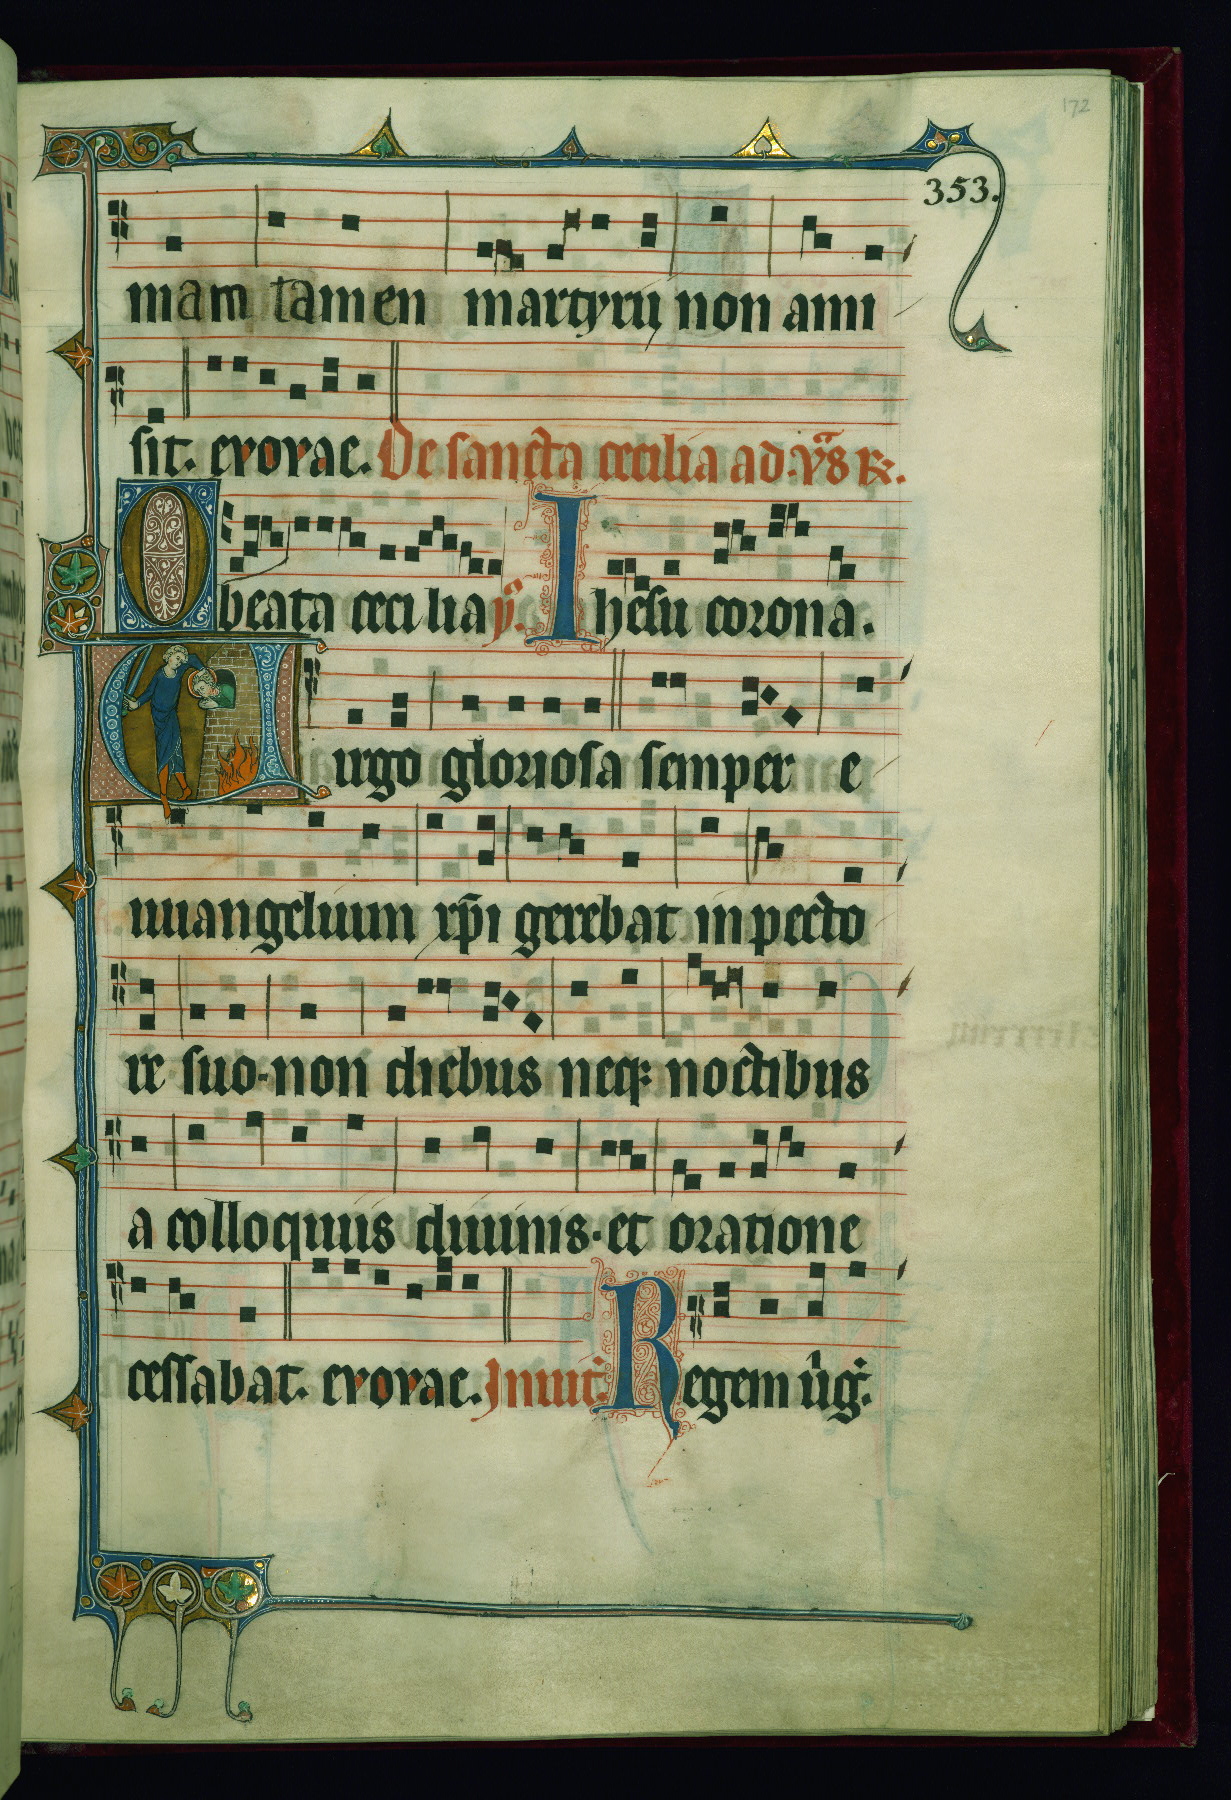 172
353.
mam tamen martyrij non ami
sit. evovae. De sancta cecilia ad v̾s ℟.
O beata cecilia ẏ. Ihesu corona.
Virgo gloriosa semper e
uuangelium xp̄i gerebat in pecto
re suo·non diebus neq; noctibus
a colloquiis diuinis·et oratione
cessabat. evovae. Inuit̾. Regem uͥgͥ.